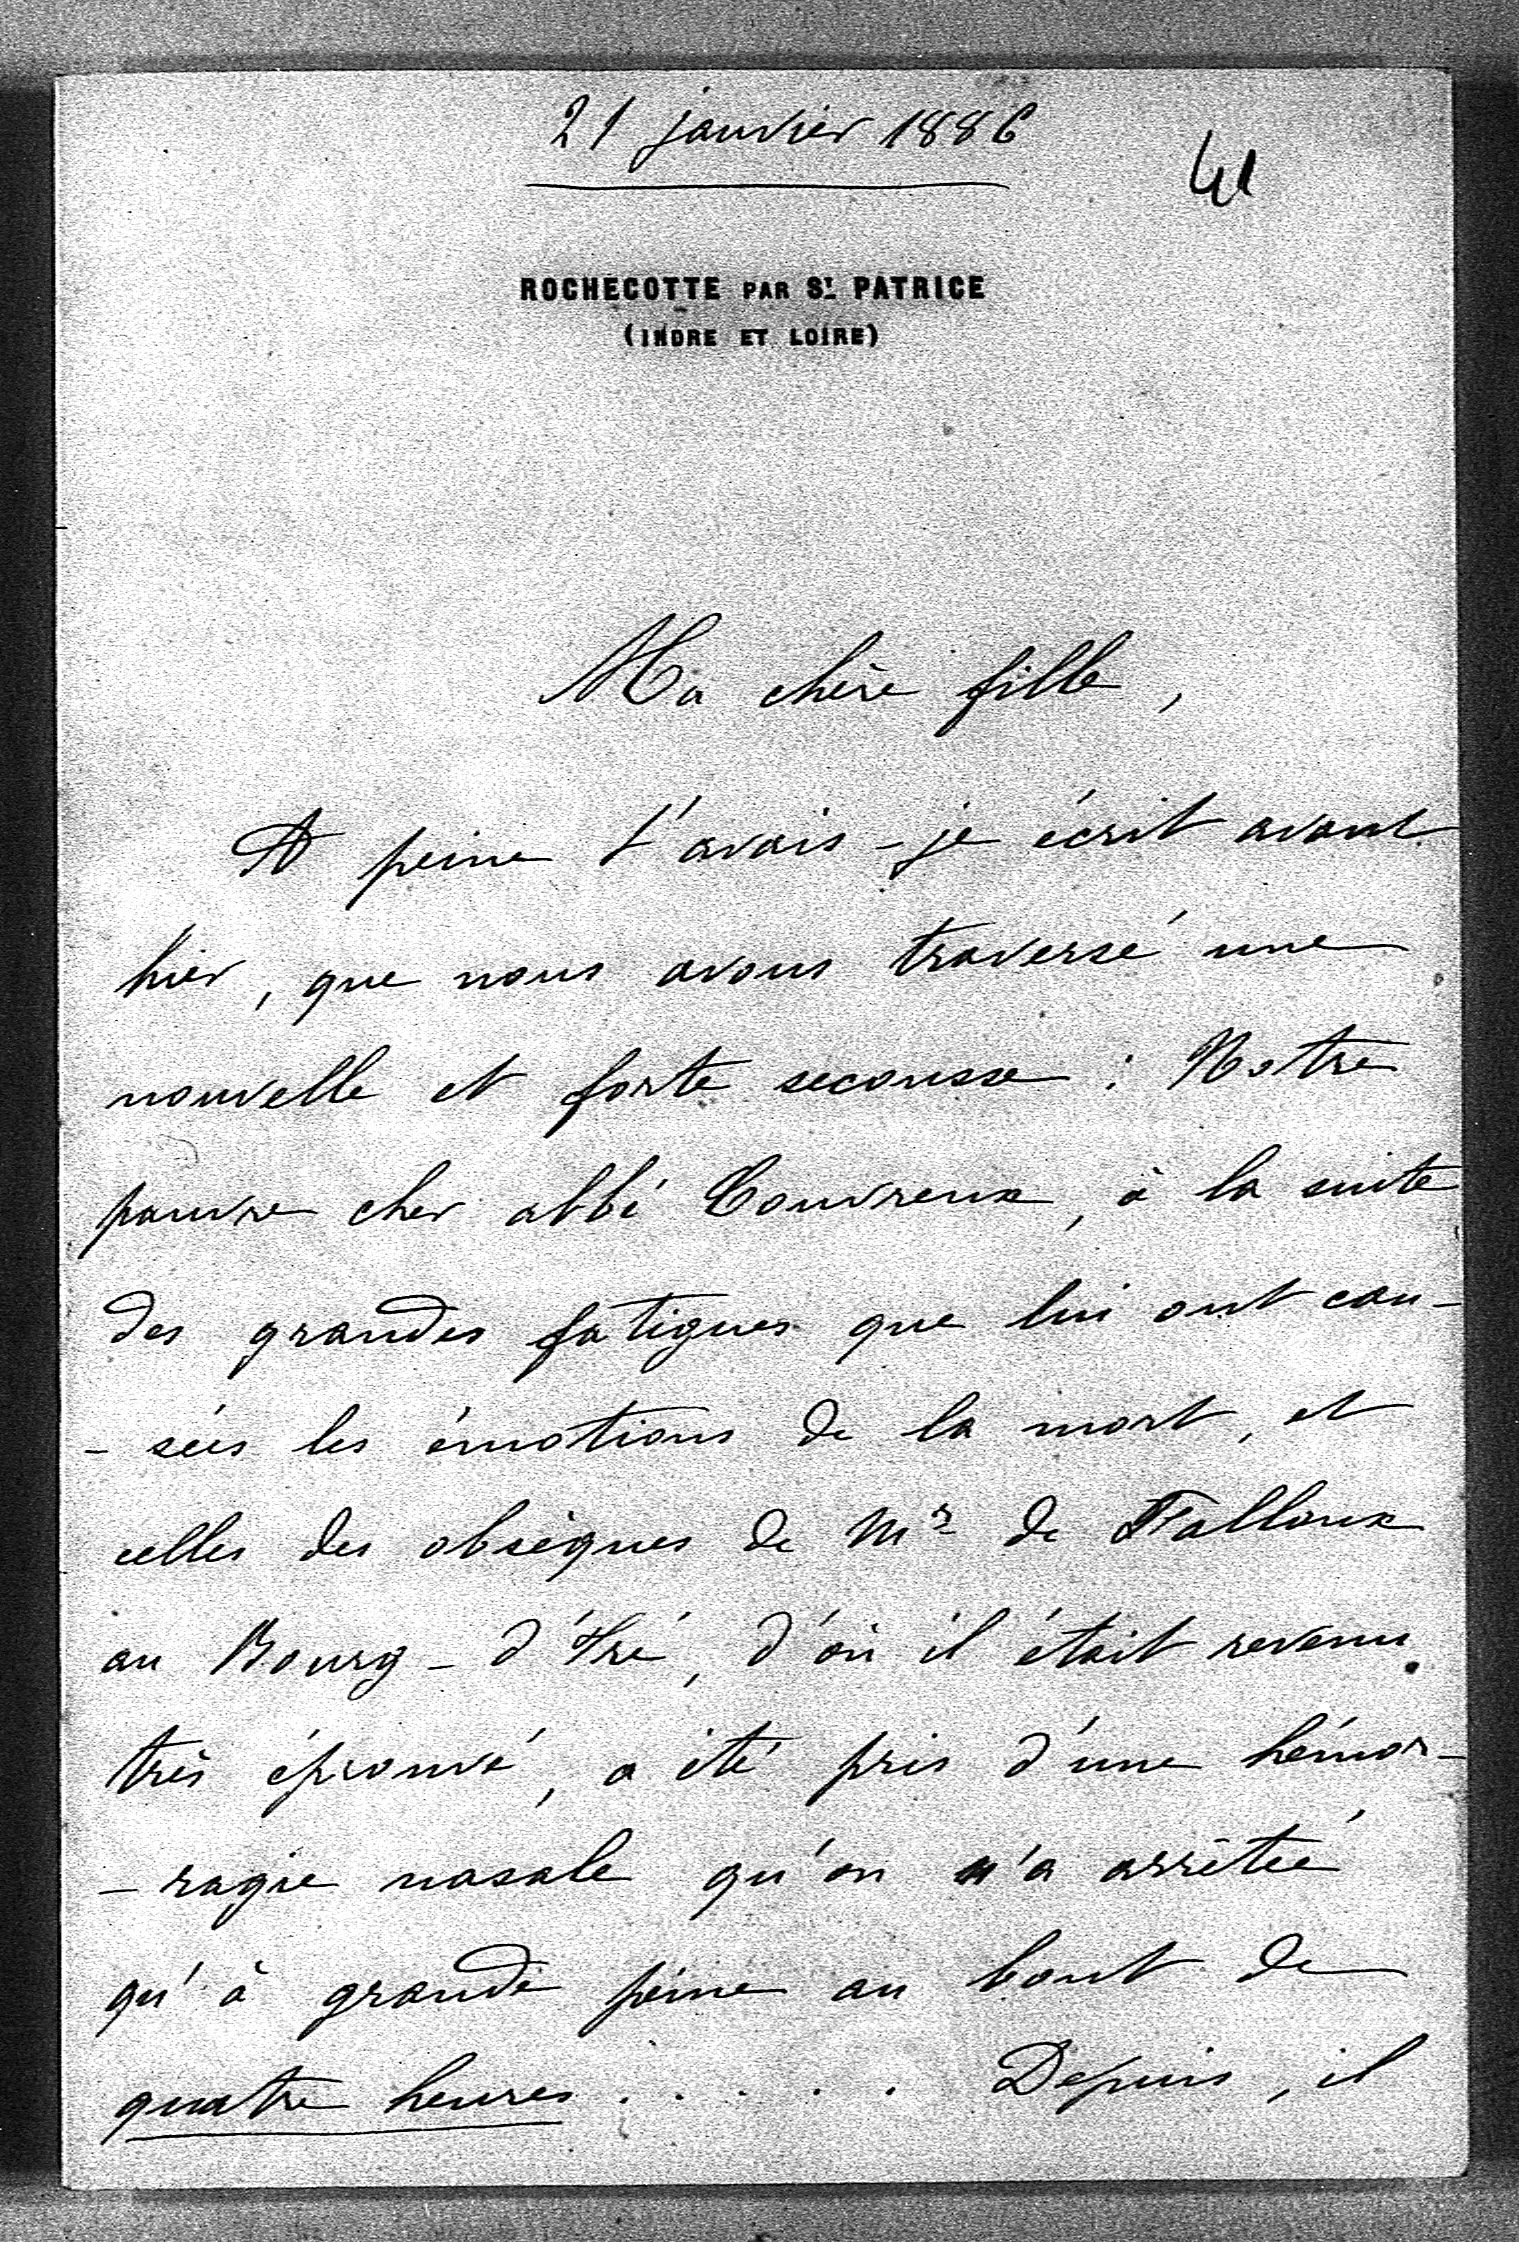 21 janvier 1886
41
ROCHECOTTE PAR ST. PATRICE
(INDRE ET LOIRE)
Ma chère fille,
A peine t'avais-je écrit avant
hier, que nous avons traversé une
nouvelle et forte secousse : Notre
pauvre cher abbé Couvreux, à la suite
des grandes fatigues que lui ont cau-
- sées les émotions de la mort, et
celles des obsèques de Mr de Falloux
au Bourg-d'Iré, d'où il était revenu
très éprouvé, a été pris d'une hémor-
- ragie nasale qu'on n'a arrêtée
qu'à grande peine au bout de
quatre heures. . . . . Depuis, il